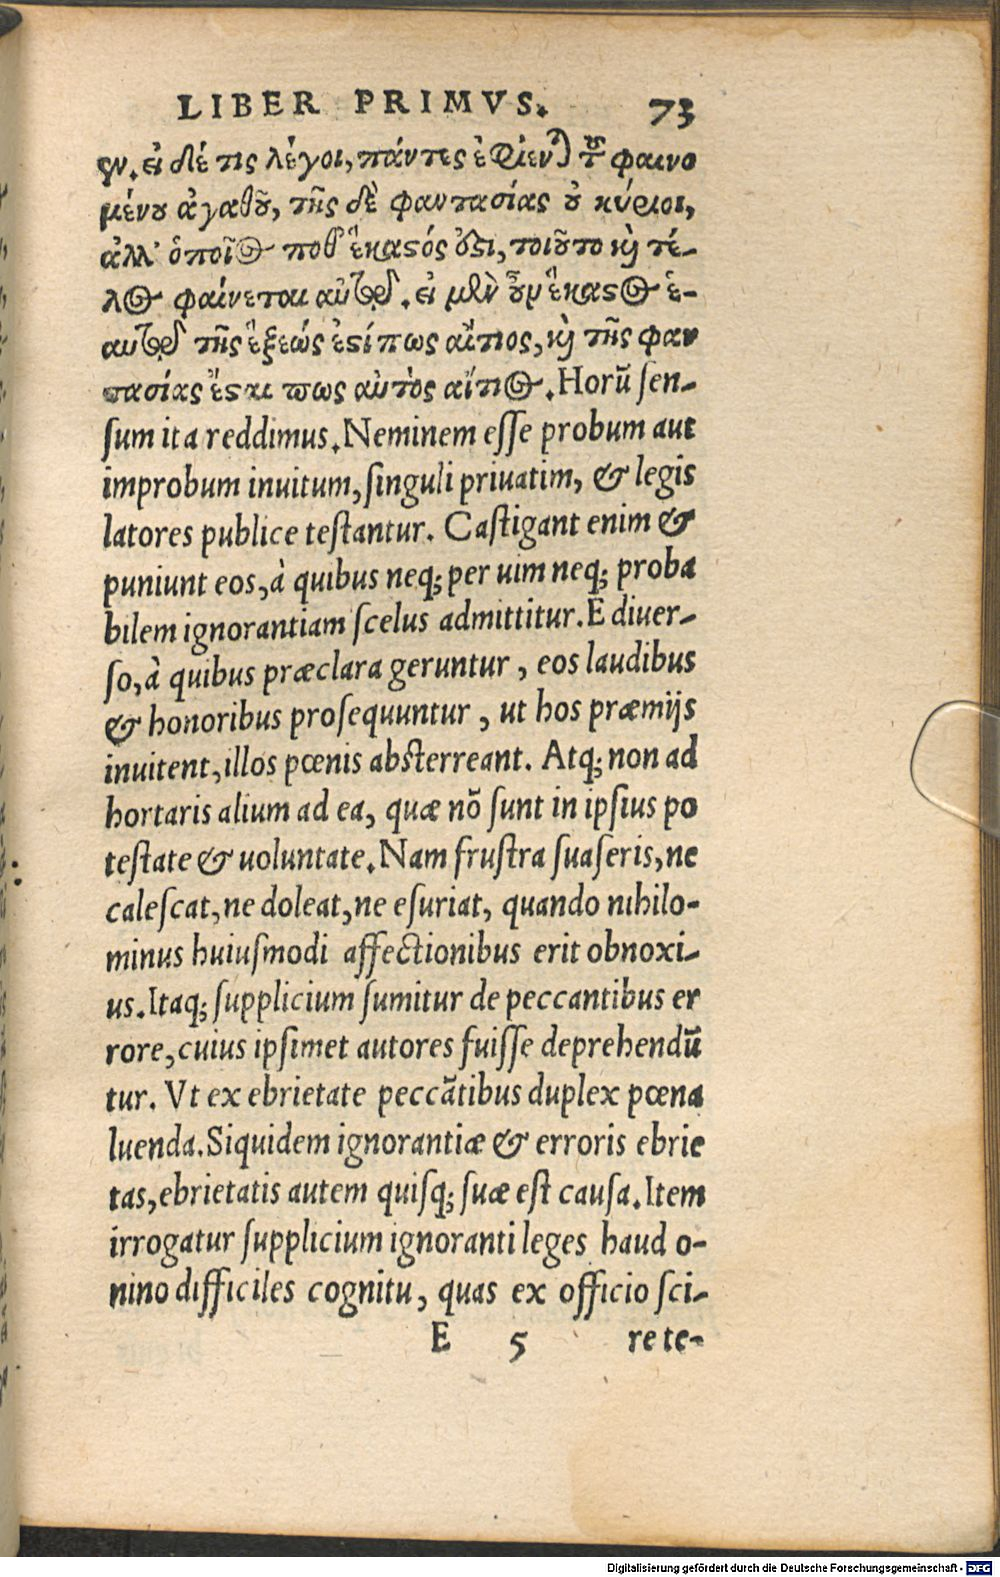 LIBER PRIMVS. 73
ων. εἰ δέ τις λέγοι, πάντες ἐφίεντ) τοῦ φαινο
μένου ἀγαθοῦ, τῆς δὲ φαντασίας οὐ κύριοι,
ἀλλ' ὁποῖος ποθ' ἕκαστός ὅστι, τοιοῦτο καὶ τέ-
λος φαίνεται αὐτῷ. εἰ μὲν οὖν ἕκαστος ἑ-
αυτῷ τῆς ἕξεώς ἐστί πως αἴτιος, καὶ τῆς φαν
τασίας ἔσται πως αὐτὸς αἴτιος. Horū sen-
sum ita reddimus. Neminem esse probum aut
improbum inuitum, singuli priuatim, & legis
latores publice testantur. Castigant enim &
puniunt eos, à quibus neq; per uim neq; proba
bilem ignorantiam scelus admittitur. E diuer-
so, à quibus præclara geruntur, eos laudibus
& honoribus prosequuntur, ut hos præmijs
inuitent, illos pœnis absterreant. Atq; non ad
hortaris alium ad ea, quæ nō sunt in ipsius po
testate & uoluntate. Nam frustra suaseris, ne
calescat, ne doleat, ne esuriat, quando nihilo-
minus huiusmodi affectionibus erit obnoxi-
us. Itaq; supplicium sumitur de peccantibus er
rore, cuius ipsimet autores fuisse deprehendū
tur. Vt ex ebrietate peccātibus duplex pœna
luenda. Siquidem ignorantiæ & erroris ebrie
tas, ebrietatis autem quisq; suæ est causa. Item
irrogatur supplicium ignoranti leges haud o-
nino difficiles cognitu, quas ex officio sci-
E 5 re te-
Digitalisierung gefördert durch die Deutsche Forschungsgemeinschaft - DFG